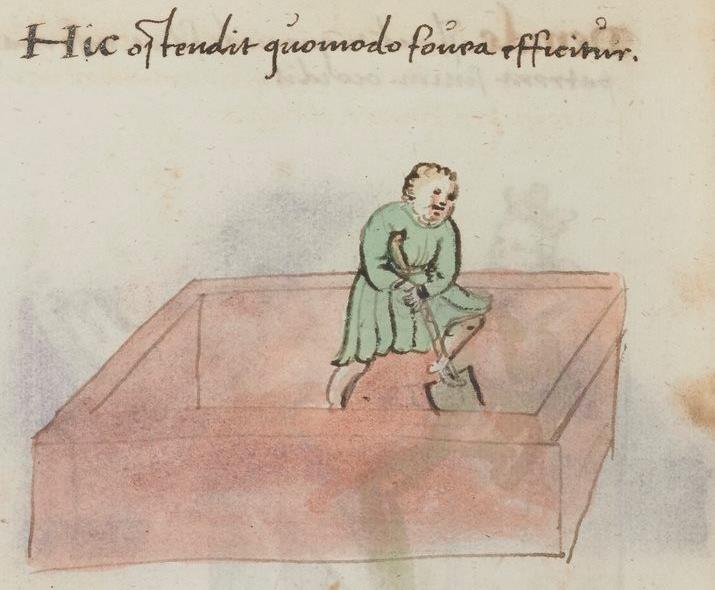 Hic oſtendit quomodo fovea efficitur.